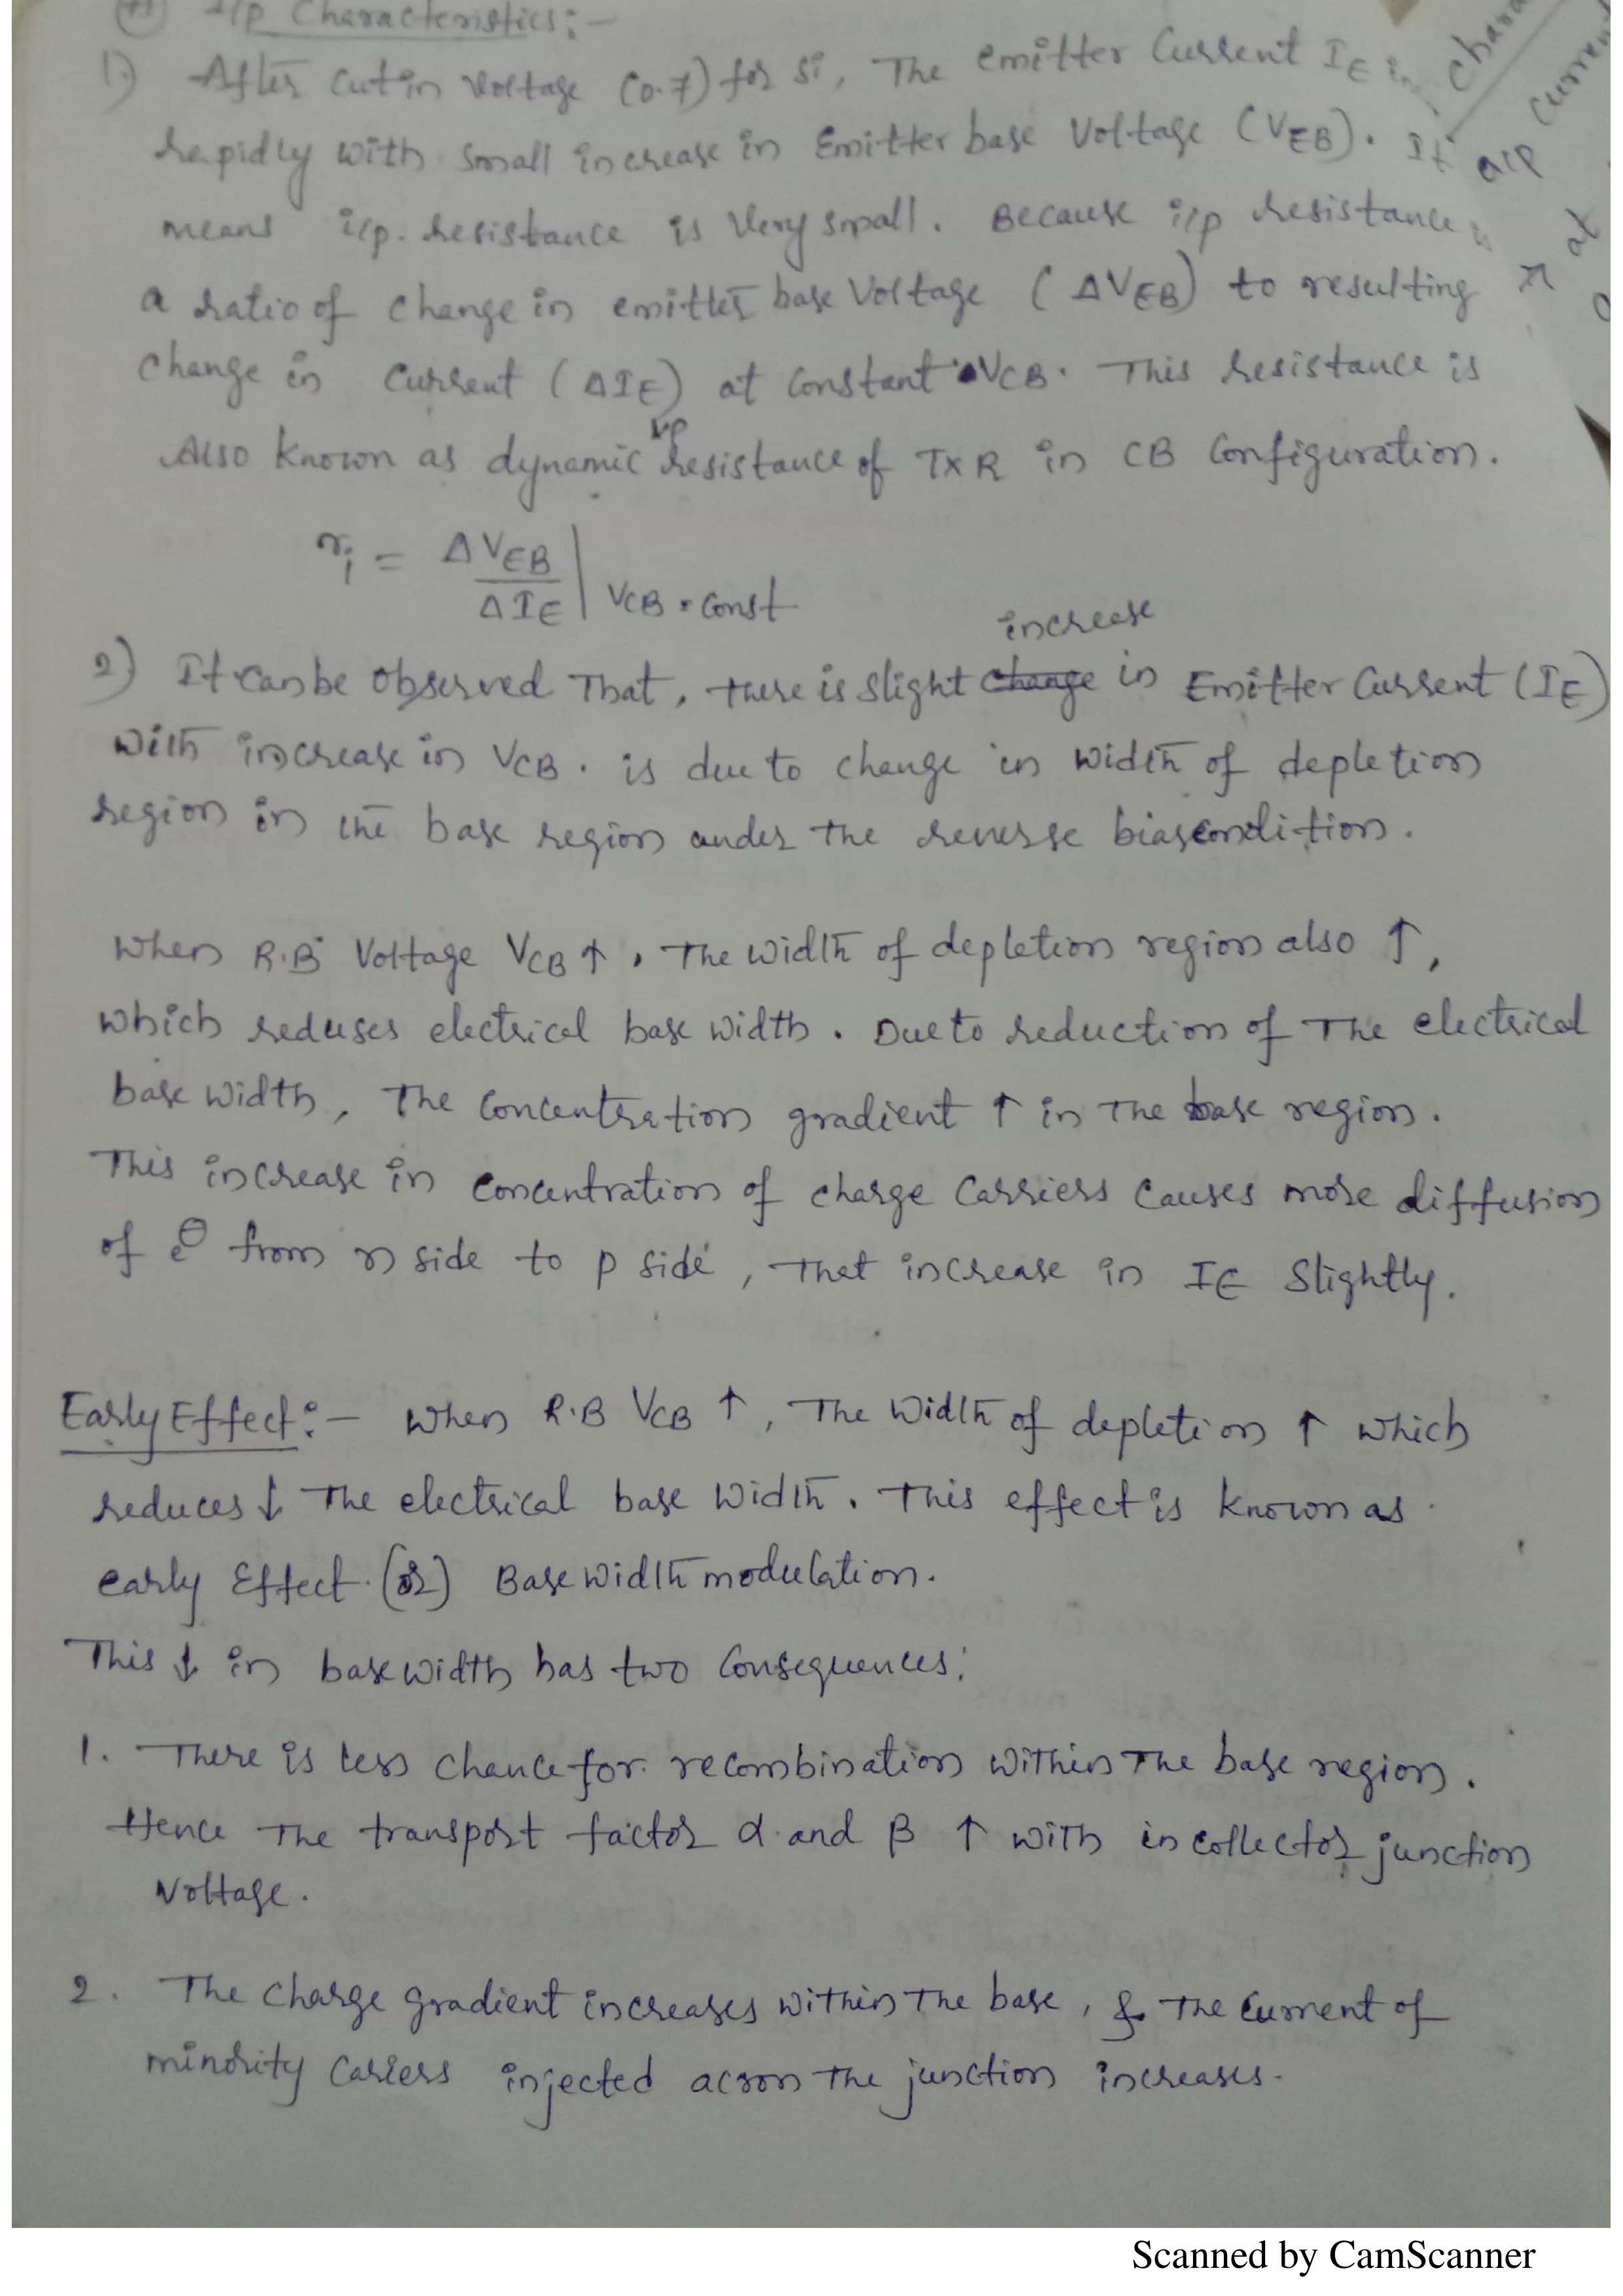 i/p Characteristics:-
1) After Cutin Voltage (0.7) for Si, The emitter Current IE
rapidly with small increase in Emitter base Voltage (VEB). It
means i/p. resistance is Very small. Because i/p resistance is
a ratio of change in emitter base Voltage (ΔVEB) to resulting
change in Current (ΔIE) at Constant VCB. This resistance is
Also known as dynamic i/p resistance of TXR in CB Configuration.
ri = ΔVEB / ΔIE | VCB = Const
2) It can be Observed That, there is slight change increase in Emitter Current (IE)
With increase in VCB. is due to change in width of depletion
region in the base region under the reverse bias condition.
When R.B Voltage VCB ↑, The width of depletion region also ↑,
which reduses electrical base width. Due to reduction of The electrical
base width, The Concentration gradient ↑ in The base region.
This increase in Concentration of charge Carriers Causes more diffusion
of e⊖ from n side to p side, That increase in IE Slightly.
Early Effect:- When R.B VCB ↑, The Width of depletion ↑ which
reduces ↓ The electrical base Width. This effect is known as
early Effect. (or) Base width modulation.
This ↓ in base width has two Consequences:
1. There is less chance for recombination within The base region.
Hence The transport factor α and β ↑ with in collector junction
Voltage.
2. The Charge gradient increases within The base, & The Current of
minority Cariers injected across The junction increases.
Chara
Curren
o/p
at
Scanned by CamScanner